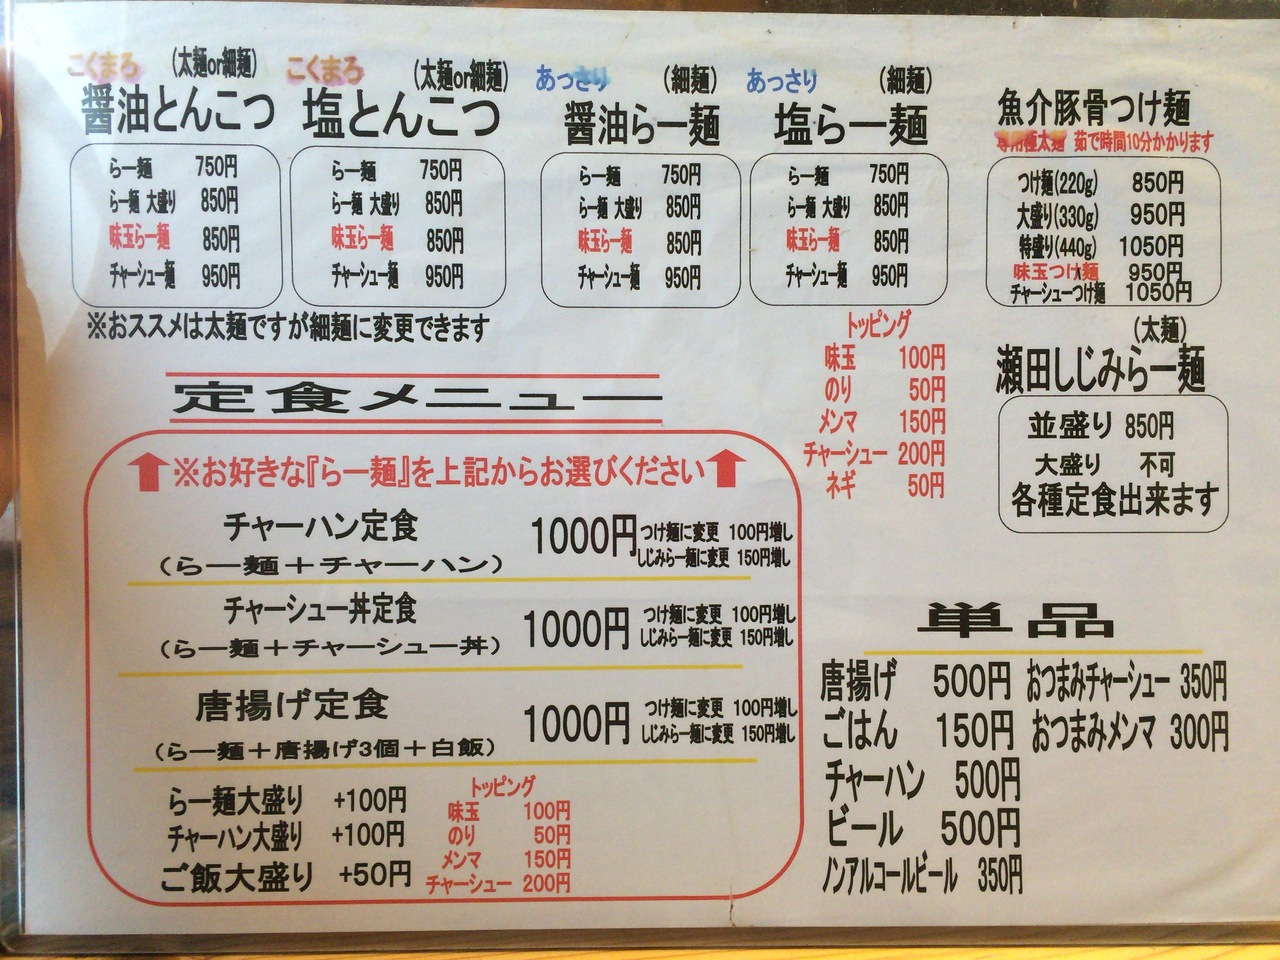 こくまろ (太麺or細麺)
醤油とんこつ
らー麺 750円
らー麺 大盛り 850円
味玉らー麺 850円
チャーシュー麺 950円
こくまろ (太麺or細麺)
塩とんこつ
らー麺 750円
らー麺 大盛り 850円
味玉らー麺 850円
チャーシュー麺 950円
※おススメは太麺ですが細麺に変更できます
あっさり (細麺)
醤油らー麺
らー麺 750円
らー麺 大盛り 850円
味玉らー麺 850円
チャーシュー麺 950円
あっさり (細麺)
塩らー麺
らー麺 750円
らー麺 大盛り 850円
味玉らー麺 850円
チャーシュー麺 950円
魚介豚骨つけ麺
専用極太麺 茹で時間10分かかります
つけ麺(220g) 850円
大盛り(330g) 950円
特盛り(440g) 1050円
味玉つけ麺 950円
チャーシューつけ麺 1050円
トッピング
味玉 100円
のり 50円
メンマ 150円
チャーシュー 200円
ネギ 50円
(太麺)
瀬田しじみらー麺
並盛り 850円
大盛り 不可
各種定食出来ます
定食メニュー
※お好きな『らー麺』を上記からお選びください
チャーハン定食 1000円
(らー麺+チャーハン)
つけ麺に変更 100円増し
しじみらー麺に変更 150円増し
チャーシュー丼定食 1000円
(らー麺+チャーシュー丼)
つけ麺に変更 100円増し
しじみらー麺に変更 150円増し
唐揚げ定食 1000円
(らー麺+唐揚げ3個+白飯)
つけ麺に変更 100円増し
しじみらー麺に変更 150円増し
らー麺大盛り +100円
チャーハン大盛り +100円
ご飯大盛り +50円
トッピング
味玉 100円
のり 50円
メンマ 150円
チャーシュー 200円
単品
唐揚げ 500円
ごはん 150円
チャーハン 500円
ビール 500円
ノンアルコールビール 350円
おつまみチャーシュー 350円
おつまみメンマ 300円